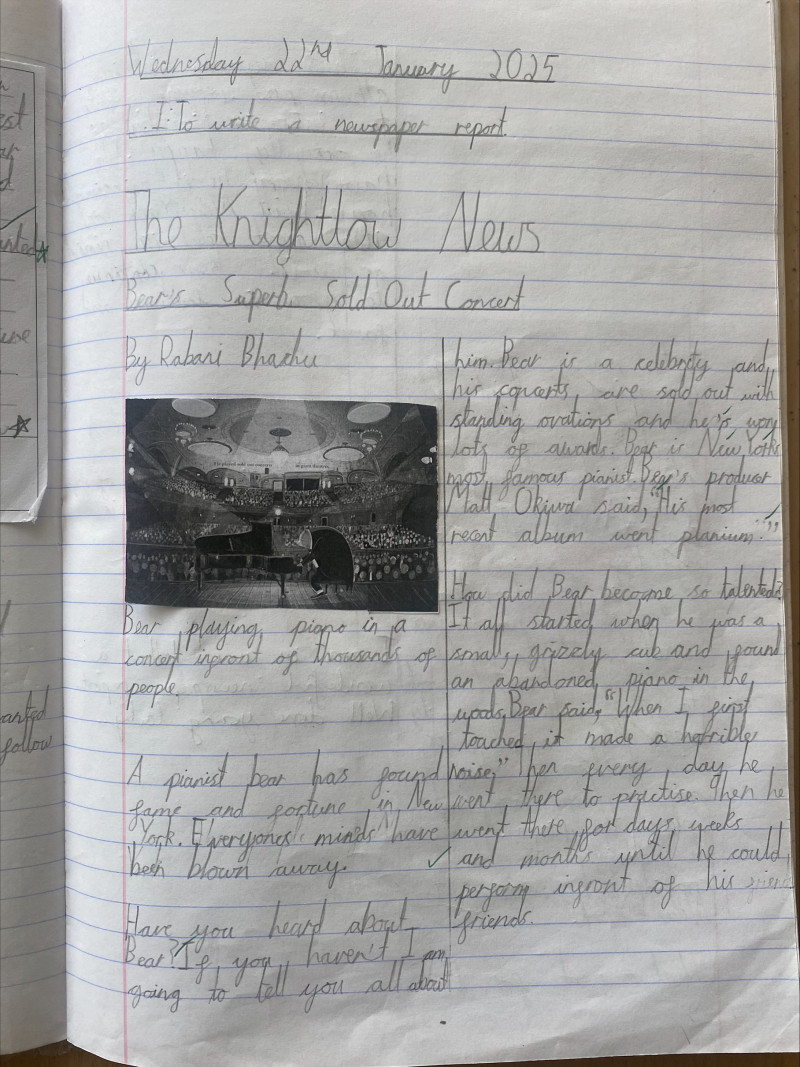 Wednesday 22nd January 2025
L.I: To write a newspaper report
The Knightlow News
Bear's Superb Sold Out Concert
By Rabani Bhachu
Bear playing piano in a
concert infront of thousands of
people.
A pianist bear has found
fame and fortune in New
York. Everyones minds have
been blown away.
Have you heard about
Bear? If you haven't I am
going to tell you all about
him. Bear is a celebrity and
his concerts, are sold out with
standing ovations and he's won
lots of awards. Bear is New York's
most famous pianist. Bear's producer
Matt Okiwa said, "His most
recent album went planium."
How did Bear become so talented?
It all started when he was a
small, grizzly cub and found
an abandoned piano in the
woods, Bear said, "When I first
touched it made a horrible
noise." Then every day he
went there to practise. Then he
went there for days weeks
and months until he could
perform infront of his
friends.